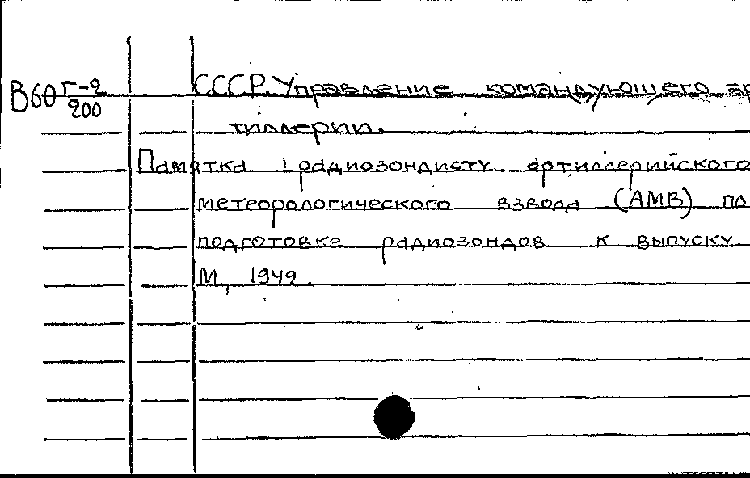 В60 Г-2
200
СССР. Управление командующего ар
тиллерии.
Памятка радиозондисту артиллерийского
метеорологического взвода (АМВ) по
подготовке радиозондов к выпуску
М, 1949.